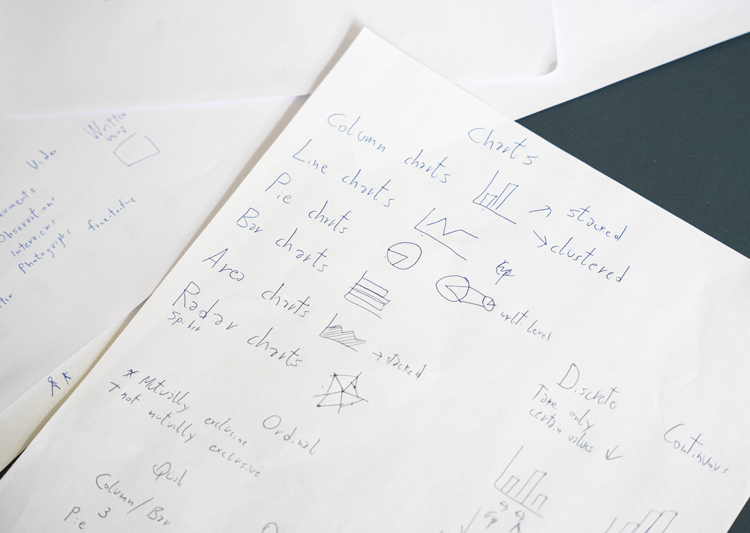 Charts
Column charts
stacked
clustered
Line charts
Pie charts
multi level
Bar charts
Area charts
stacked
Radar charts
Spider
* Mutually exclusive
+ not mutually exclusive
Ordinal
Discrete
Take only
certain values
Continuous
Qual
Column/Bar
Pie 3
Written
Video
Interviews
Photographs